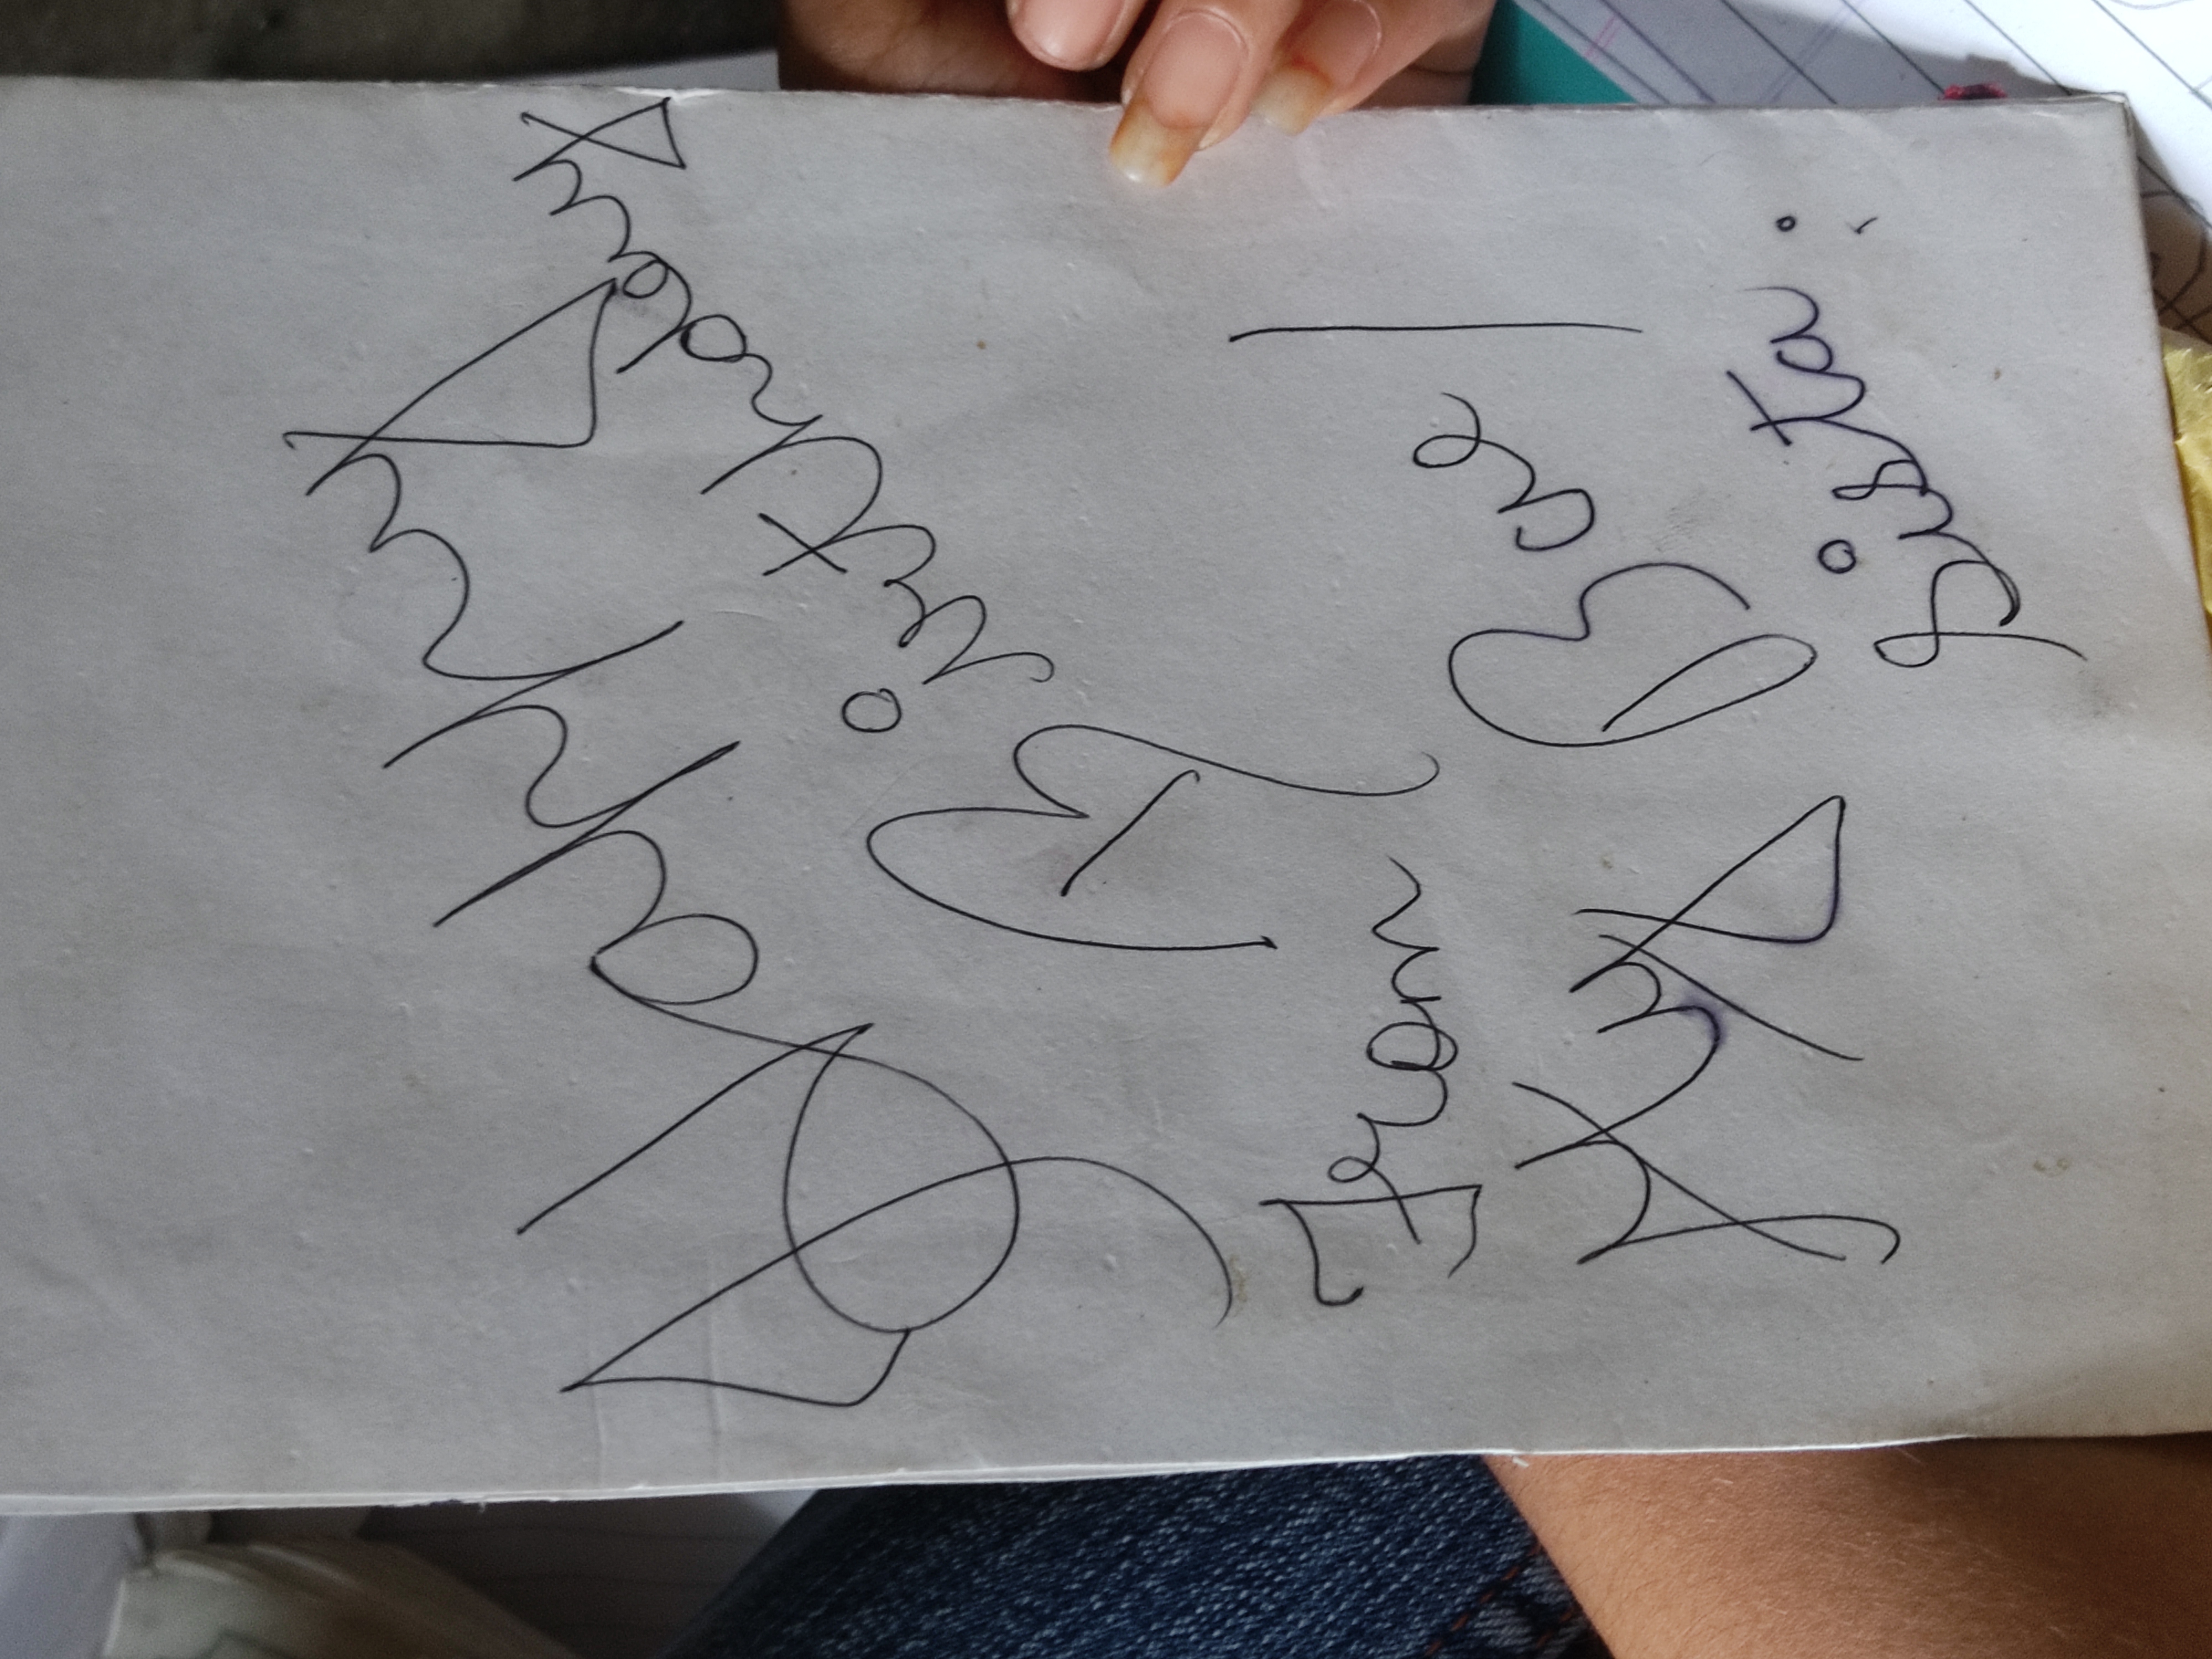 Happy
Birthday
From
My Bae
Sista